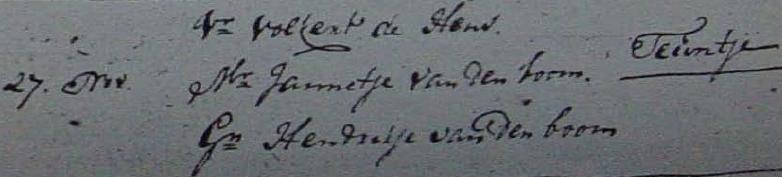 Vr Volkert de Hens.
27. Nov. Mr Jannetje van den boom. Teuntje
Gn Hendrikje van den boom